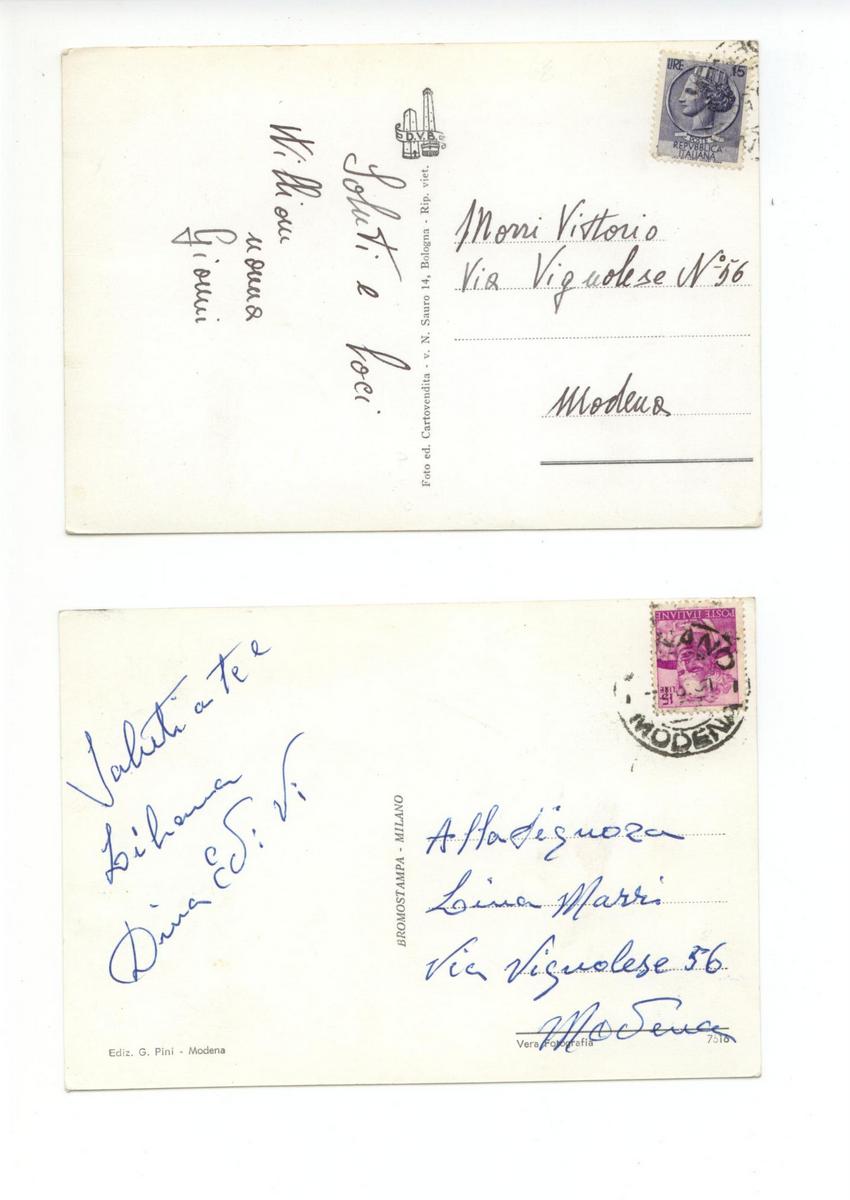 LIRE 15
POSTE
REPVBBLICA
ITALIANA
D.V.B.
Morri Vittorio
Via Vignolese N° 56
Modena
Foto ed. Cartovendita - v. N. Sauro 14, Bologna - Rip. viet.
Saluti e baci
William
nonna
Gianni
POSTE ITALIANE
LIRE 15
MODENA
Saluti a te e
Liliana
Dina Edi Vi
BROMOSTAMPA - MILANO
Alla Signora
Lina Marri
Via Vignolese 56
Modena
Ediz. G. Pini - Modena
Vera Fotografia
7518